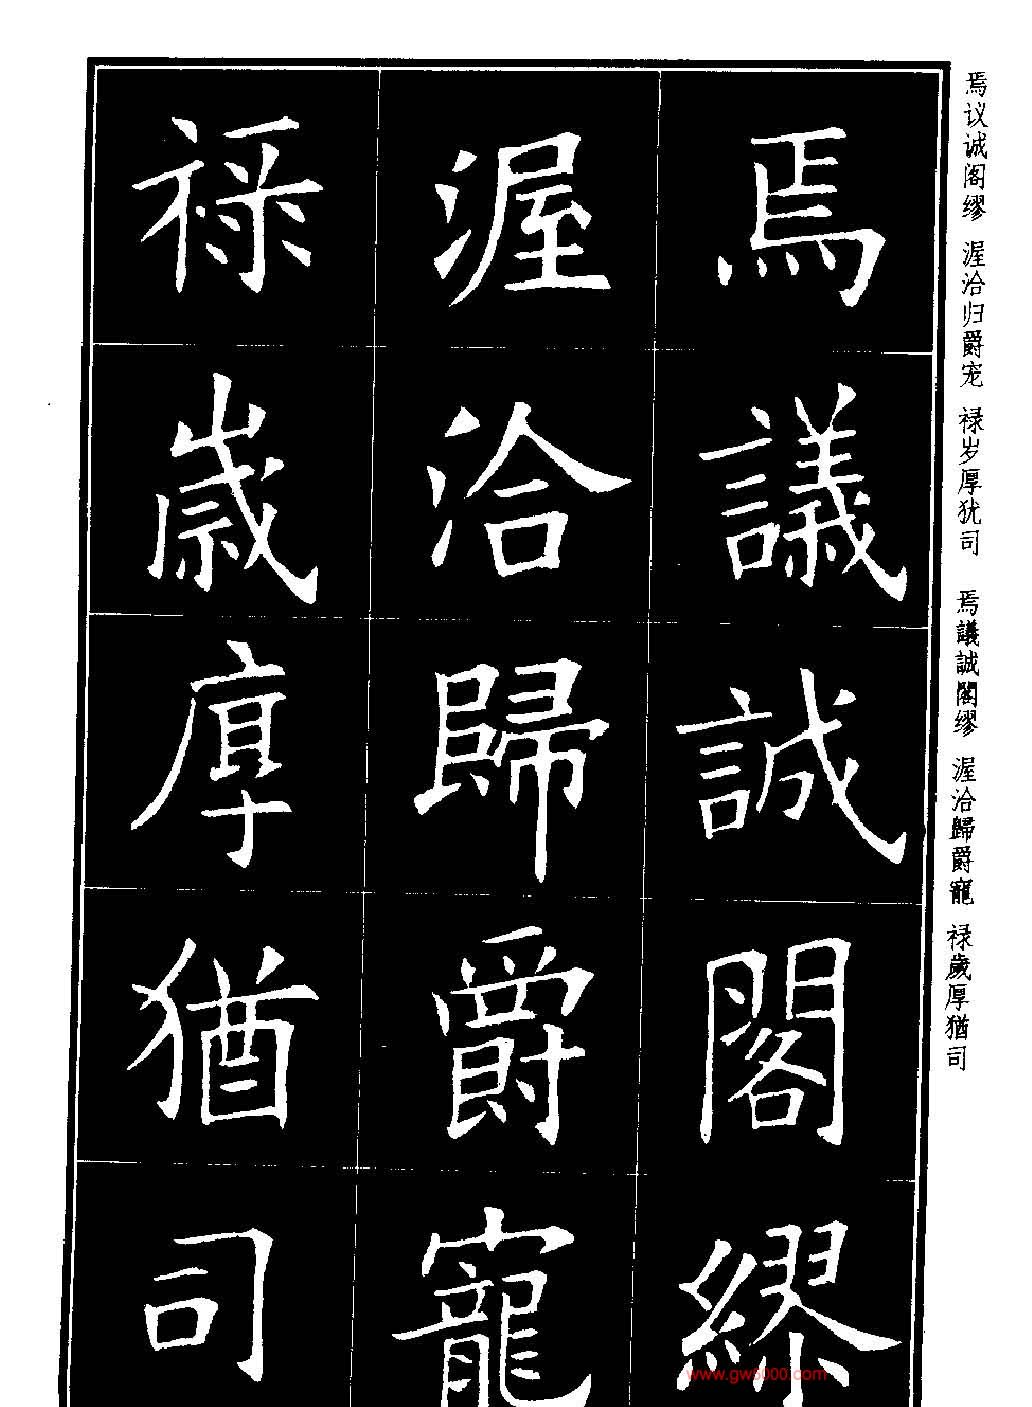 焉議誠閣繆
渥洽歸爵寵
禄歲厚猶司
焉议诚阁缪 渥洽归爵宠 禄岁厚犹司 焉議誠閣缪 渥洽歸爵寵 禄歲厚猶司
www.gw5000.com